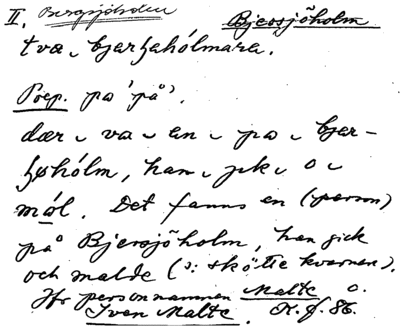 II. Bergsjöholm Bjersjöholm
två, bjarʃahólmara.
Prep. pa 'på'.
dær ˬ va ˬ en ˬ pa ˬ bjar-
ʃahólm, han ˬ jik ˬ o ˬ
mál. Det fanns en (person)
på Bjersjöholm, han gick
och malde (ɔ: skötte kvarnen).
Jfr personnamnen Malte o.
Sven Malte. K. G. 86.